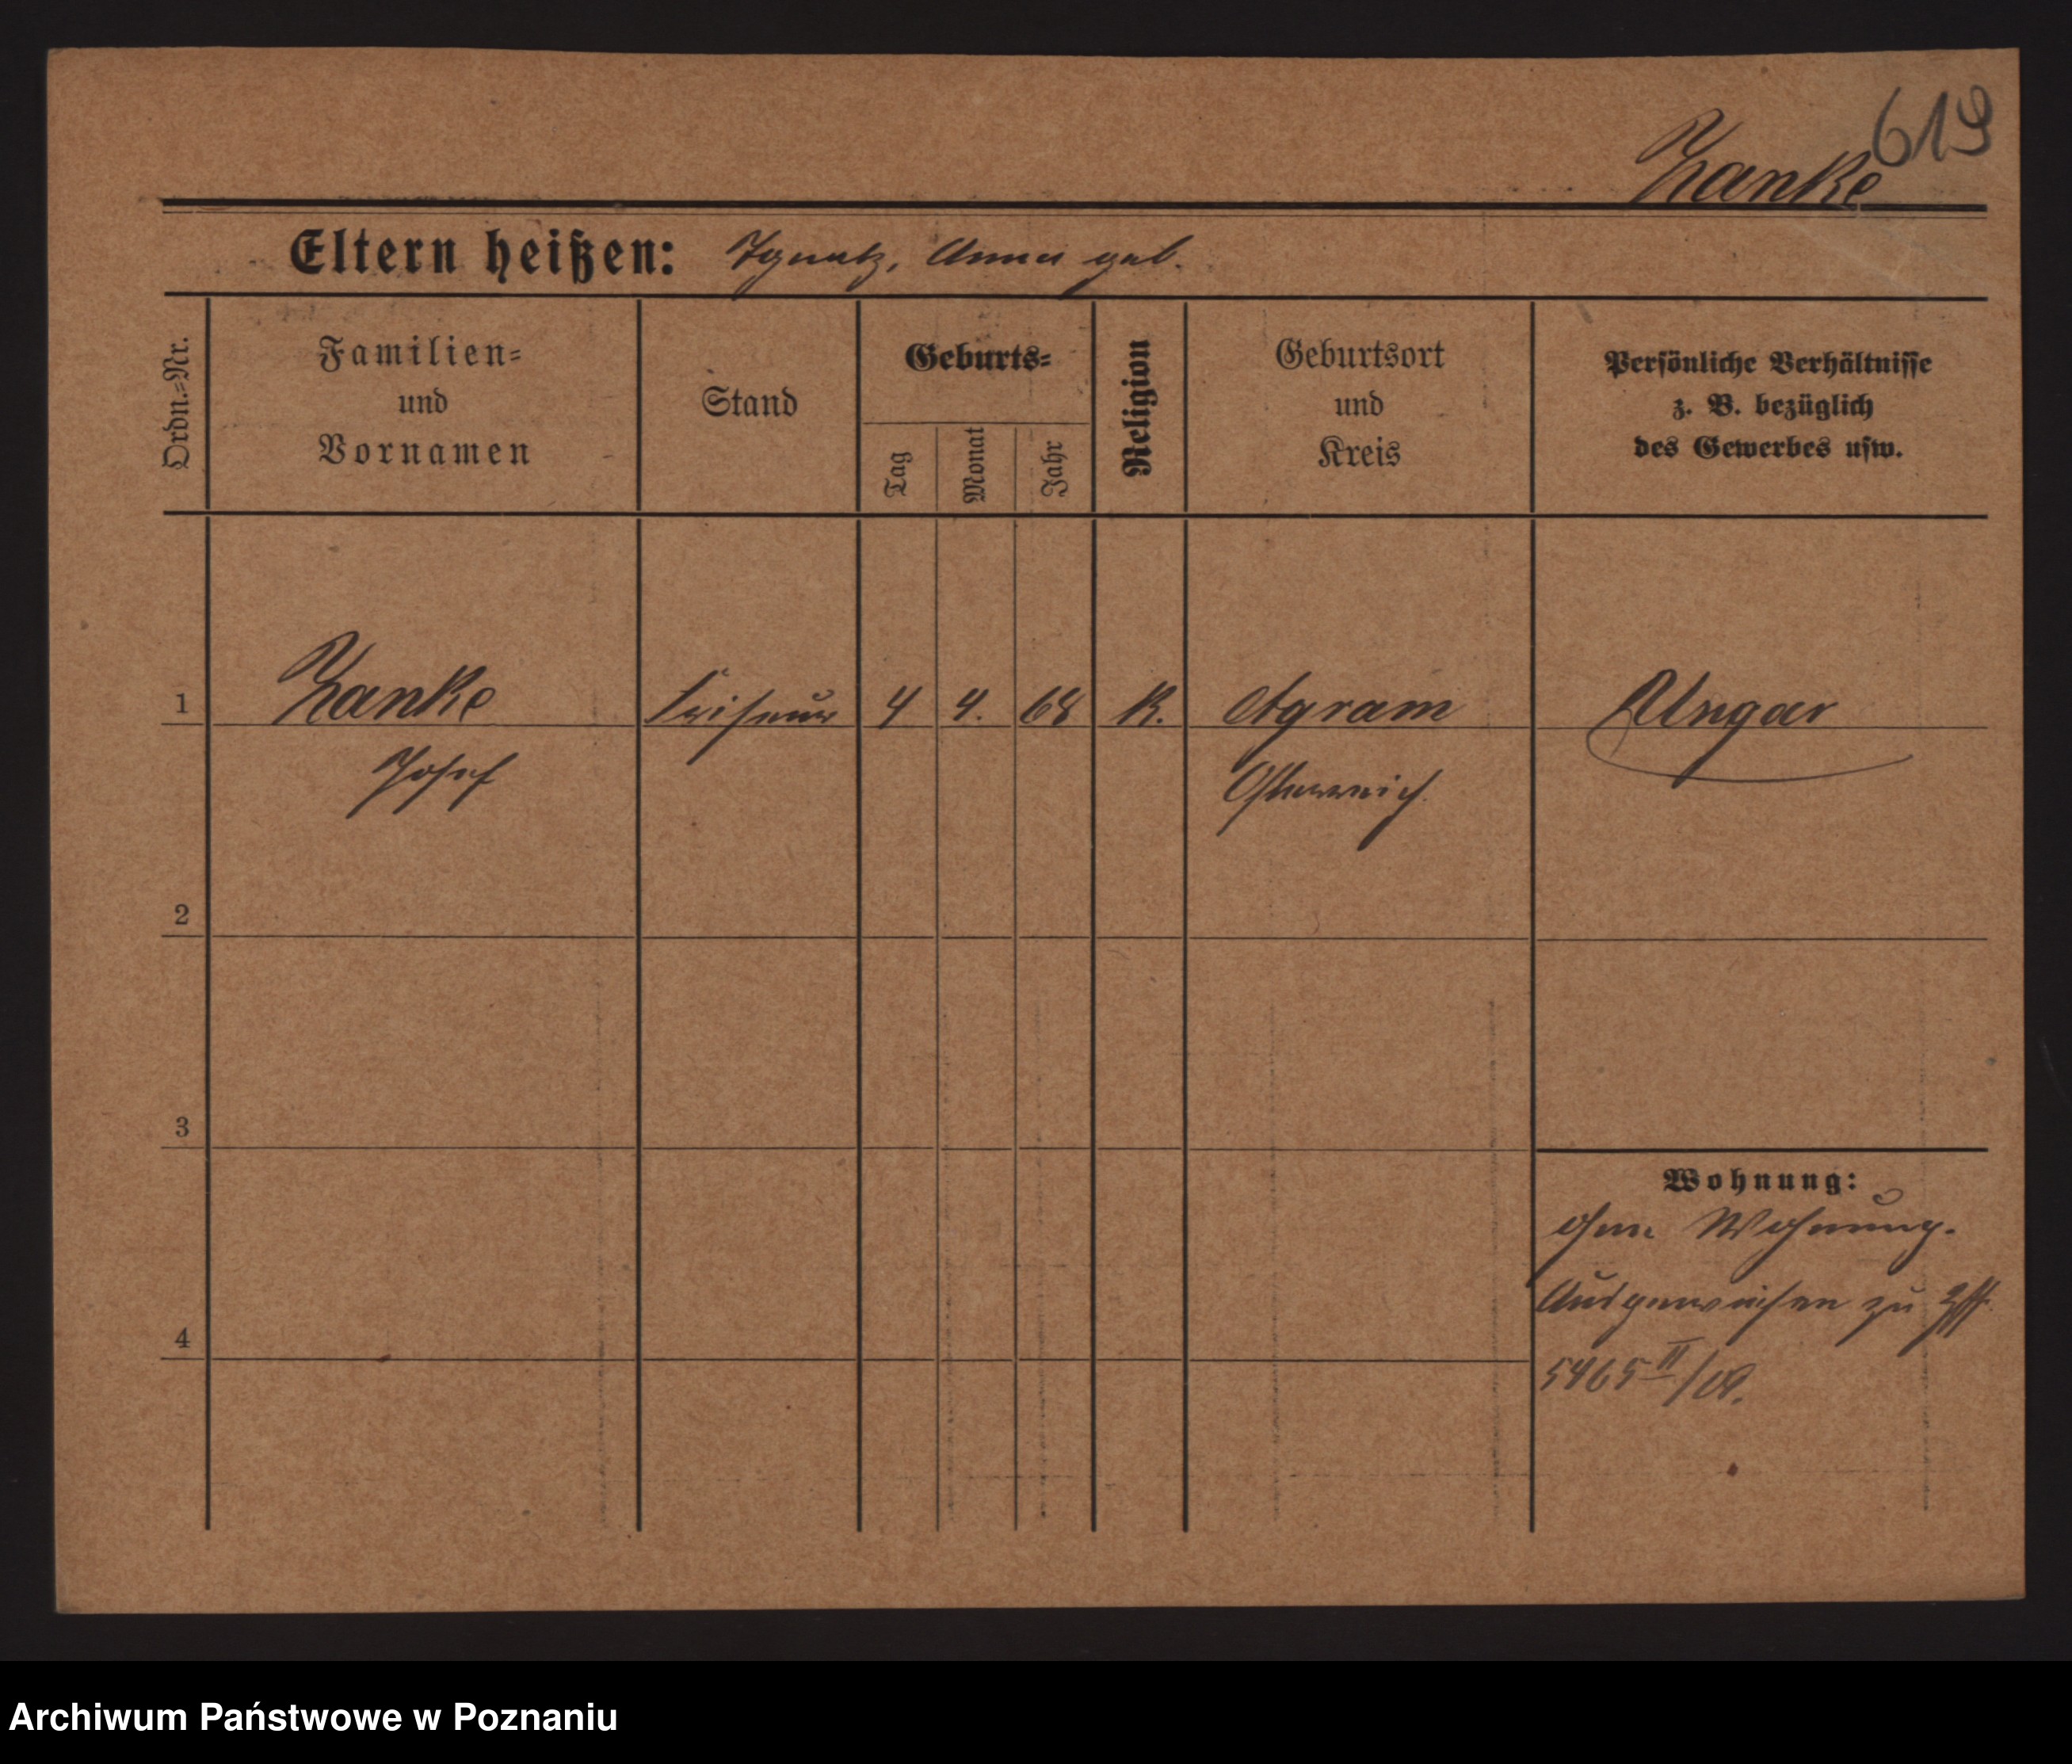 619
Zanke
Eltern heißen: Ignatz, Anna geb.
Ordn.=Nr.
Familien=
und
Vornamen
Stand
Geburts=
Tag
Monat
Jahr
Religion
Geburtsort
und
Kreis
Persönliche Verhältnisse
z. B. bezüglich
des Gewerbes usw.
1 Zanke Friseur 4 4. 68 K. Agram Ungar
Josef Österreich.
2
3
4
Wohnung:
ohne Wohnung.
Ausgewiesen zu
5465 II/09.
Archiwum Państwowe w Poznaniu